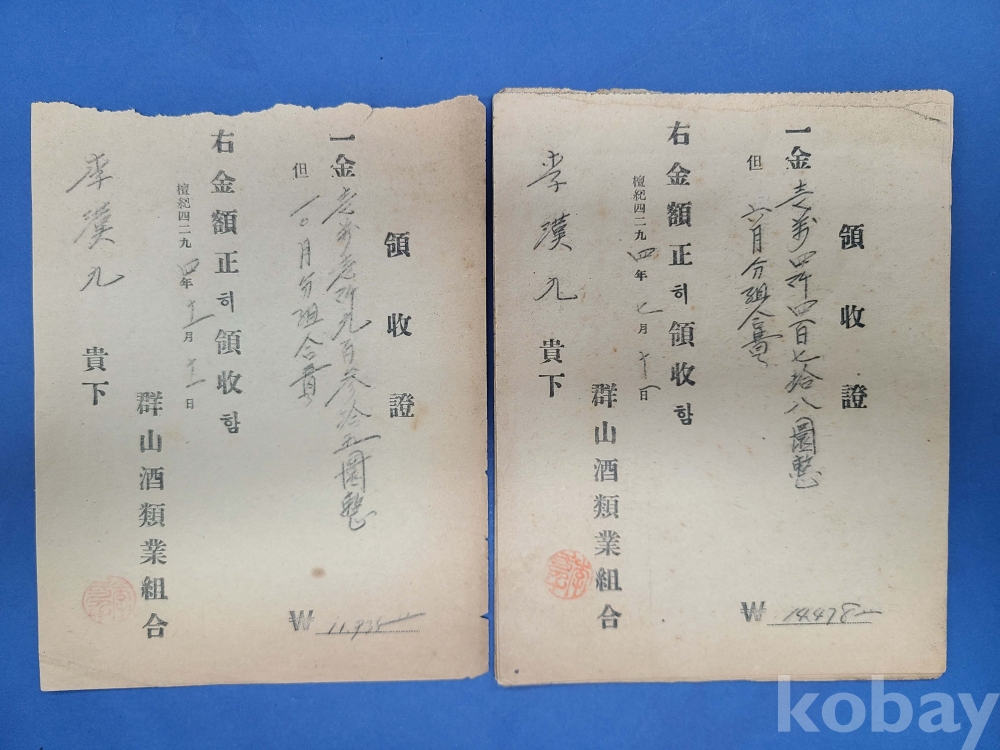 領收證
一金 壱萬四阡四百七拾八圜整
但 六月分組合費
右金額正히領收함
檀紀四二九四年 七月 十一日
群山酒類業組合
李漢九 貴下
₩ 14,478
領收證
一金 壱萬壱阡九百參拾五圜整
但 一〇月分組合費
右金額正히領收함
檀紀四二九四年 十一月 十一日
群山酒類業組合
李漢九 貴下
₩ 11,935
kobay